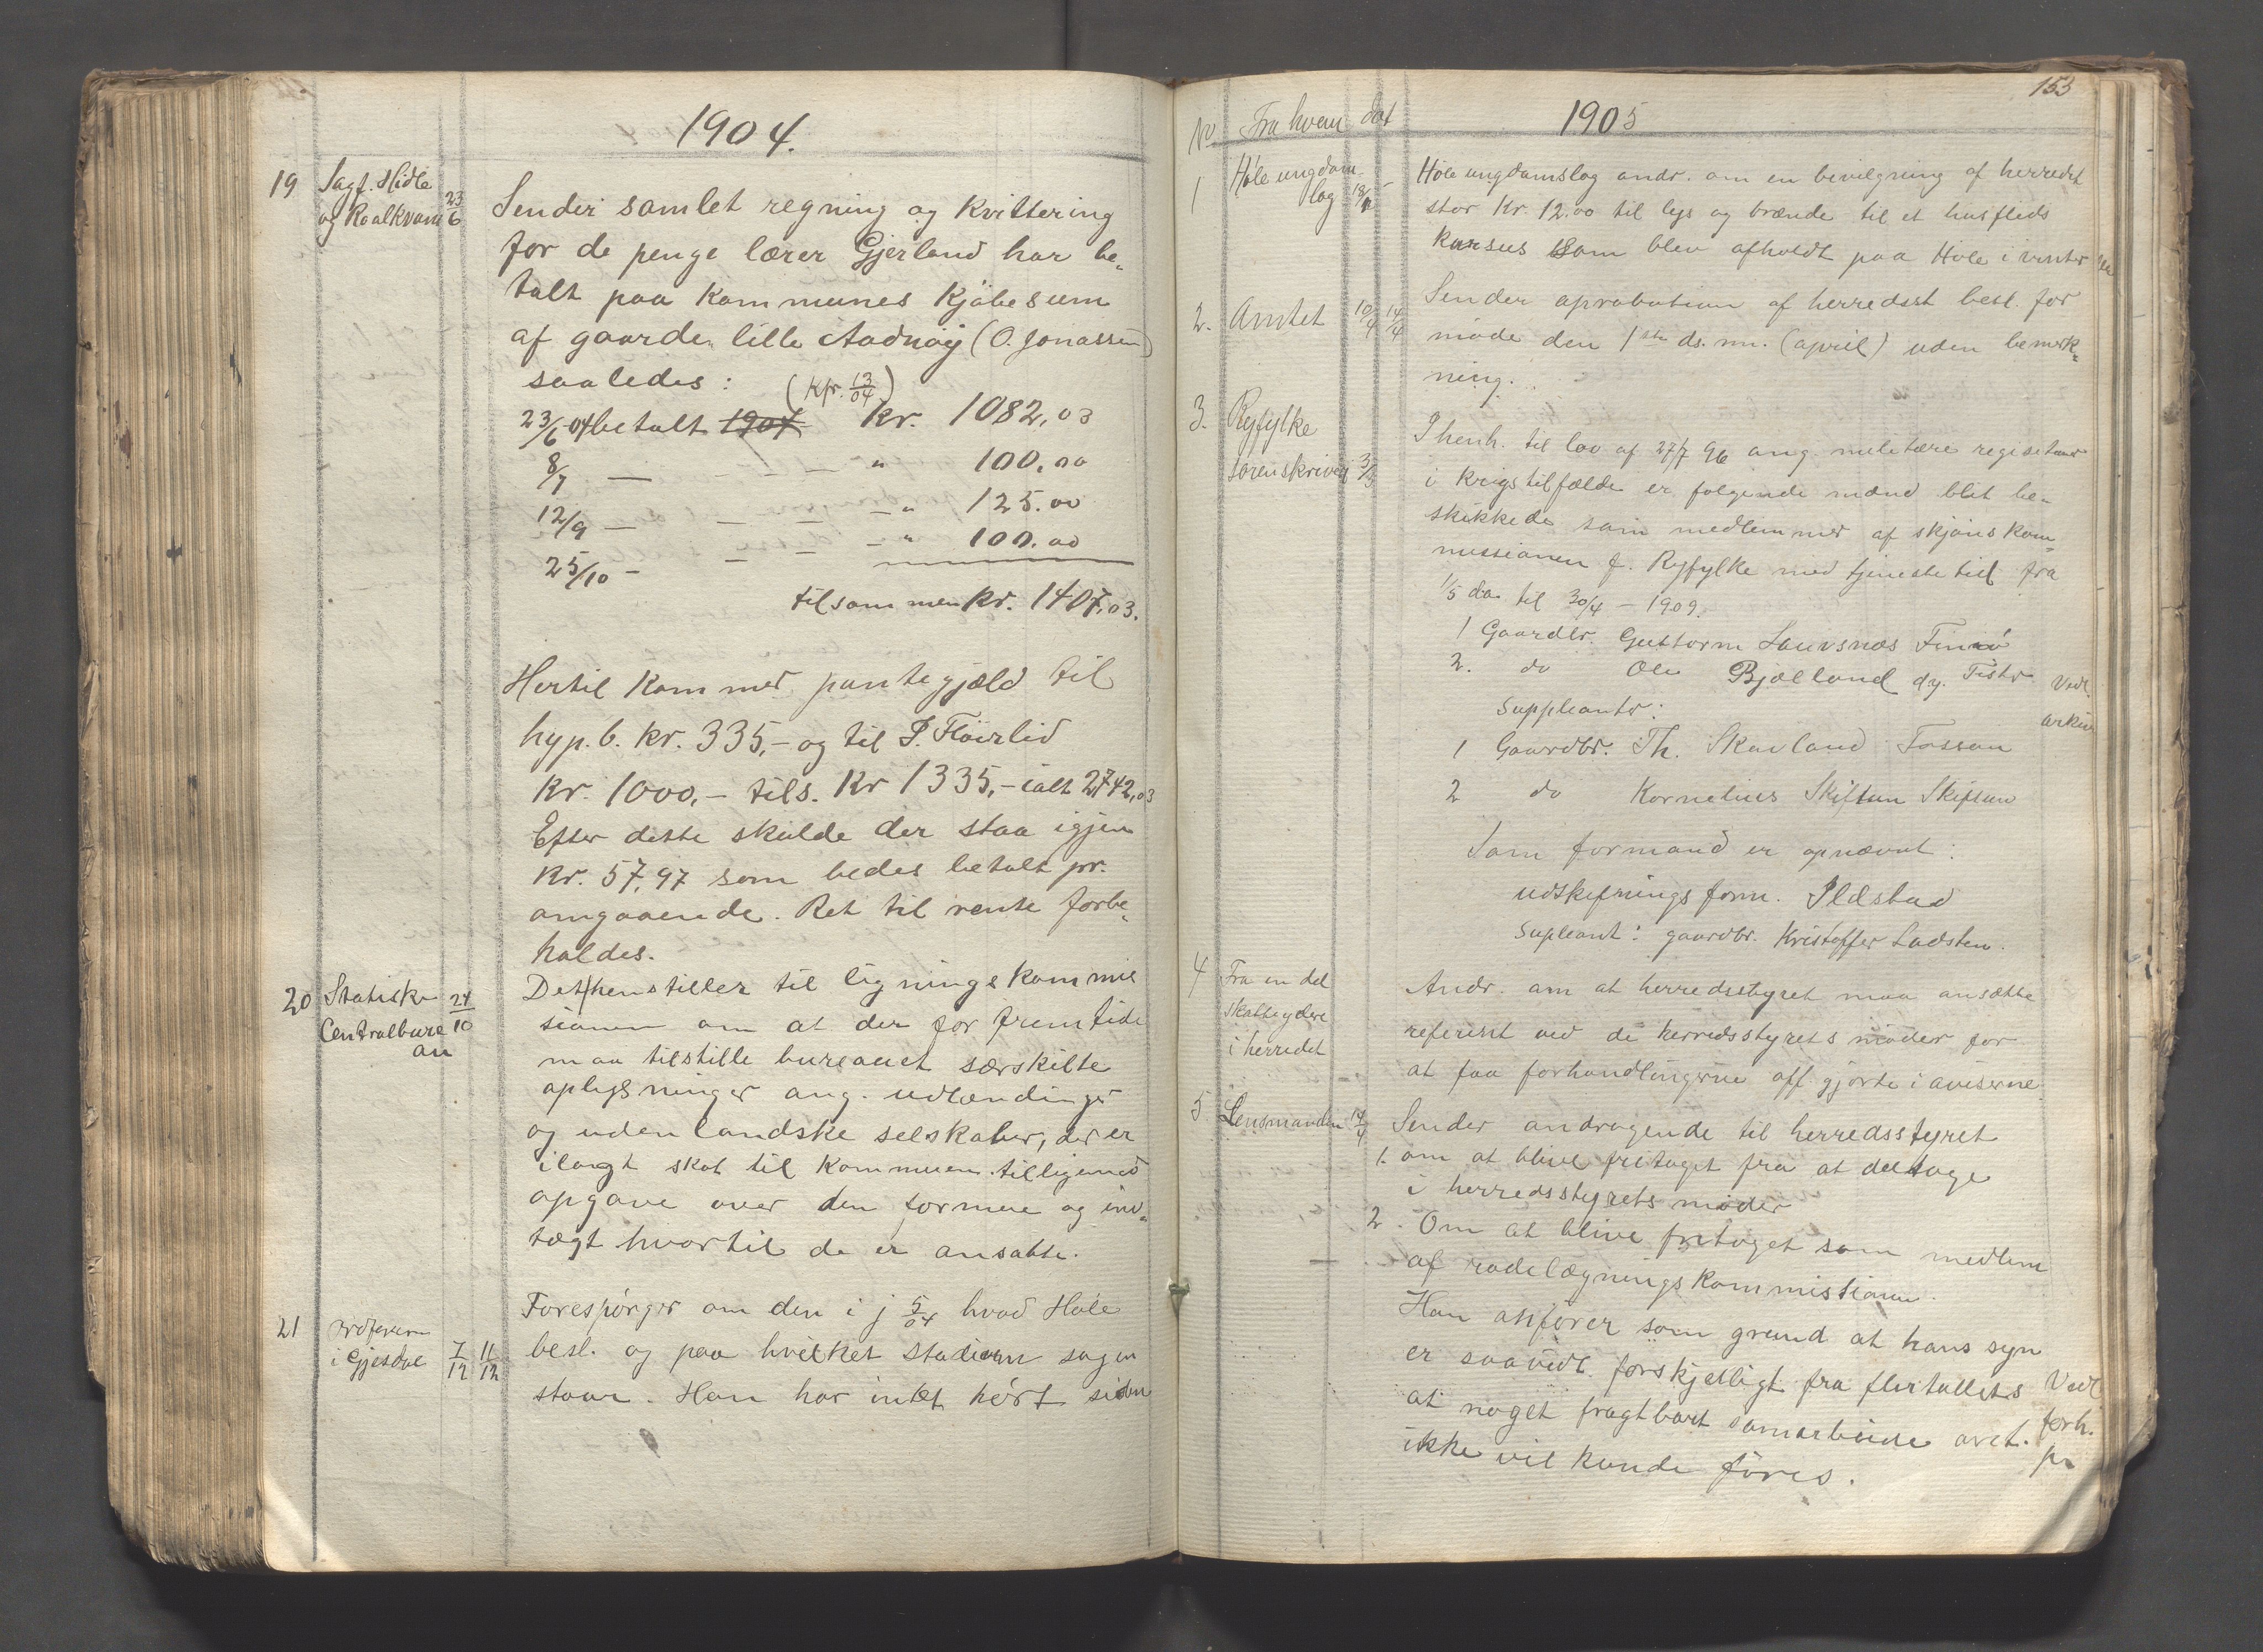 1904.
19 Sagf. Hidle 23/6
og Raalkvam
Sender samlet regning og kvittering
for de penge lærer Gjerland har be-
talt paa kommunes kjöbesum
af gaarden lille Aadnöy (O. Jonassen)
saaledes: (kfr. 13/04)
23/6 04 betalt 1904 kr. 1082,03
8/7 — — — " 100,00
12/9 — — — — " 125.00
25/10 — — — — " 100.00
tilsammen kr. 1407,03.
Hertil kommer pantegjæld til
hyp. b. kr. 335,- og til P. Flöirlid
kr. 1000,- tils. kr 1335,- ialt 2742,03
Efter dette skulde der staa igjen
kr. 57,97 som bedes betalt pr.
omgaaende. Ret til rente forbe-
holdes.
20 Statisk 24/10
Centralbure
au
Det henstiller til ligningskommis
sionen om at der for fremtiden
maa tilstille bureauet særskilte
oplysninger ang. udlændinger
og udenlandske selskaber, der er
ilagt skat til kommunen tilligemed
opgave over den formue og ind-
tægt hvortil de er ansatte.
21 Ordföreren
i Gjesdal 7/12 11/12
Forespörger om den i j 5/04 hvad Höle
besl. og paa hvilket stadium sagen
staar. Han har intet hört siden
153
No Fra hvem dat 1905
1 Höle ungdoms-
lag 18/1
Höle ungdomslag andr. om en bevilgning af herredet
stor kr. 12.00 til lys og brænde til et husflids
kursus som blev afholdt paa Höle i vinter
2. Amtet 10/4 14/4
Sender aprobation af herredsst besl. for
möde den 1ste ds. mn. (april) uden bemerk-
ning.
3. Ryfylke
sorenskriveri 3/5
I henh. til lov af 27/7 96 ang. militære
i krigstilfælde er følgende mænd blit be-
skikkede som medlemmer af skjöns kom-
missionen f. Ryfylke med tjenestetid fra
1/5 da til 30/4 - 1909.
1 Gaardbr. Guttorm Lauvsnæs Finnö
2. do Ole Bjølland
Vedl.
arkiv
Suppleanter:
1 Gaardbr. Th. Skavland Fossan
2 do Kornelius Skiftun Skiftun
Som formand er opnævnt:
udskiftningsform. Ildstad
Supleant: gaardbr. Kristoffer Ladsten.
4 Fra en del
skatteydere
i herredet
Andr. om at herredsstyret maa ansætte
referent ved de herredsstyrets möder for
at faa forhandlingerne off. gjorte i aviserne.
5 Lensmanden 14/4
Sender andragende til herredsstyret
1. om at blive fritaget fra at deltage
i herredsstyrets möder
2. Om at blive fritaget som medlem
af rodelægningskommissionen.
Han anförer som grund at hans syn
er saavidt forskjelligt fra flertallets
at noget frugtbart samarbeide
ikke vil kunde föres.
Vedl
forh.
pr